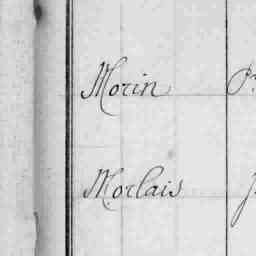 Morin
Morlais